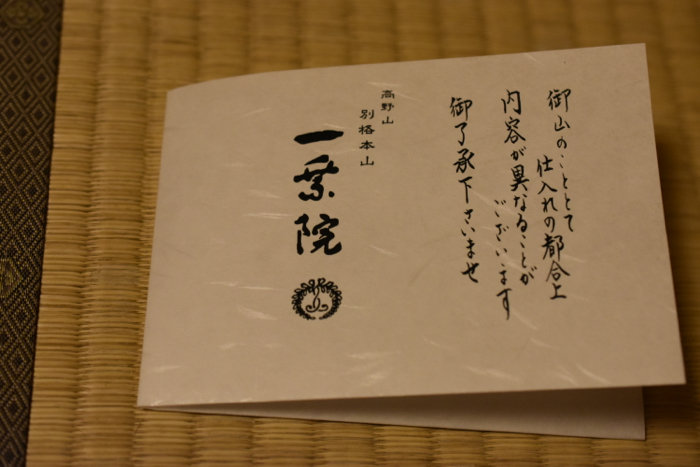 御山のこととて
仕入れの都合上
内容が異なることが
ございます
御了承下さいませ
高野山
別格本山
一乗院